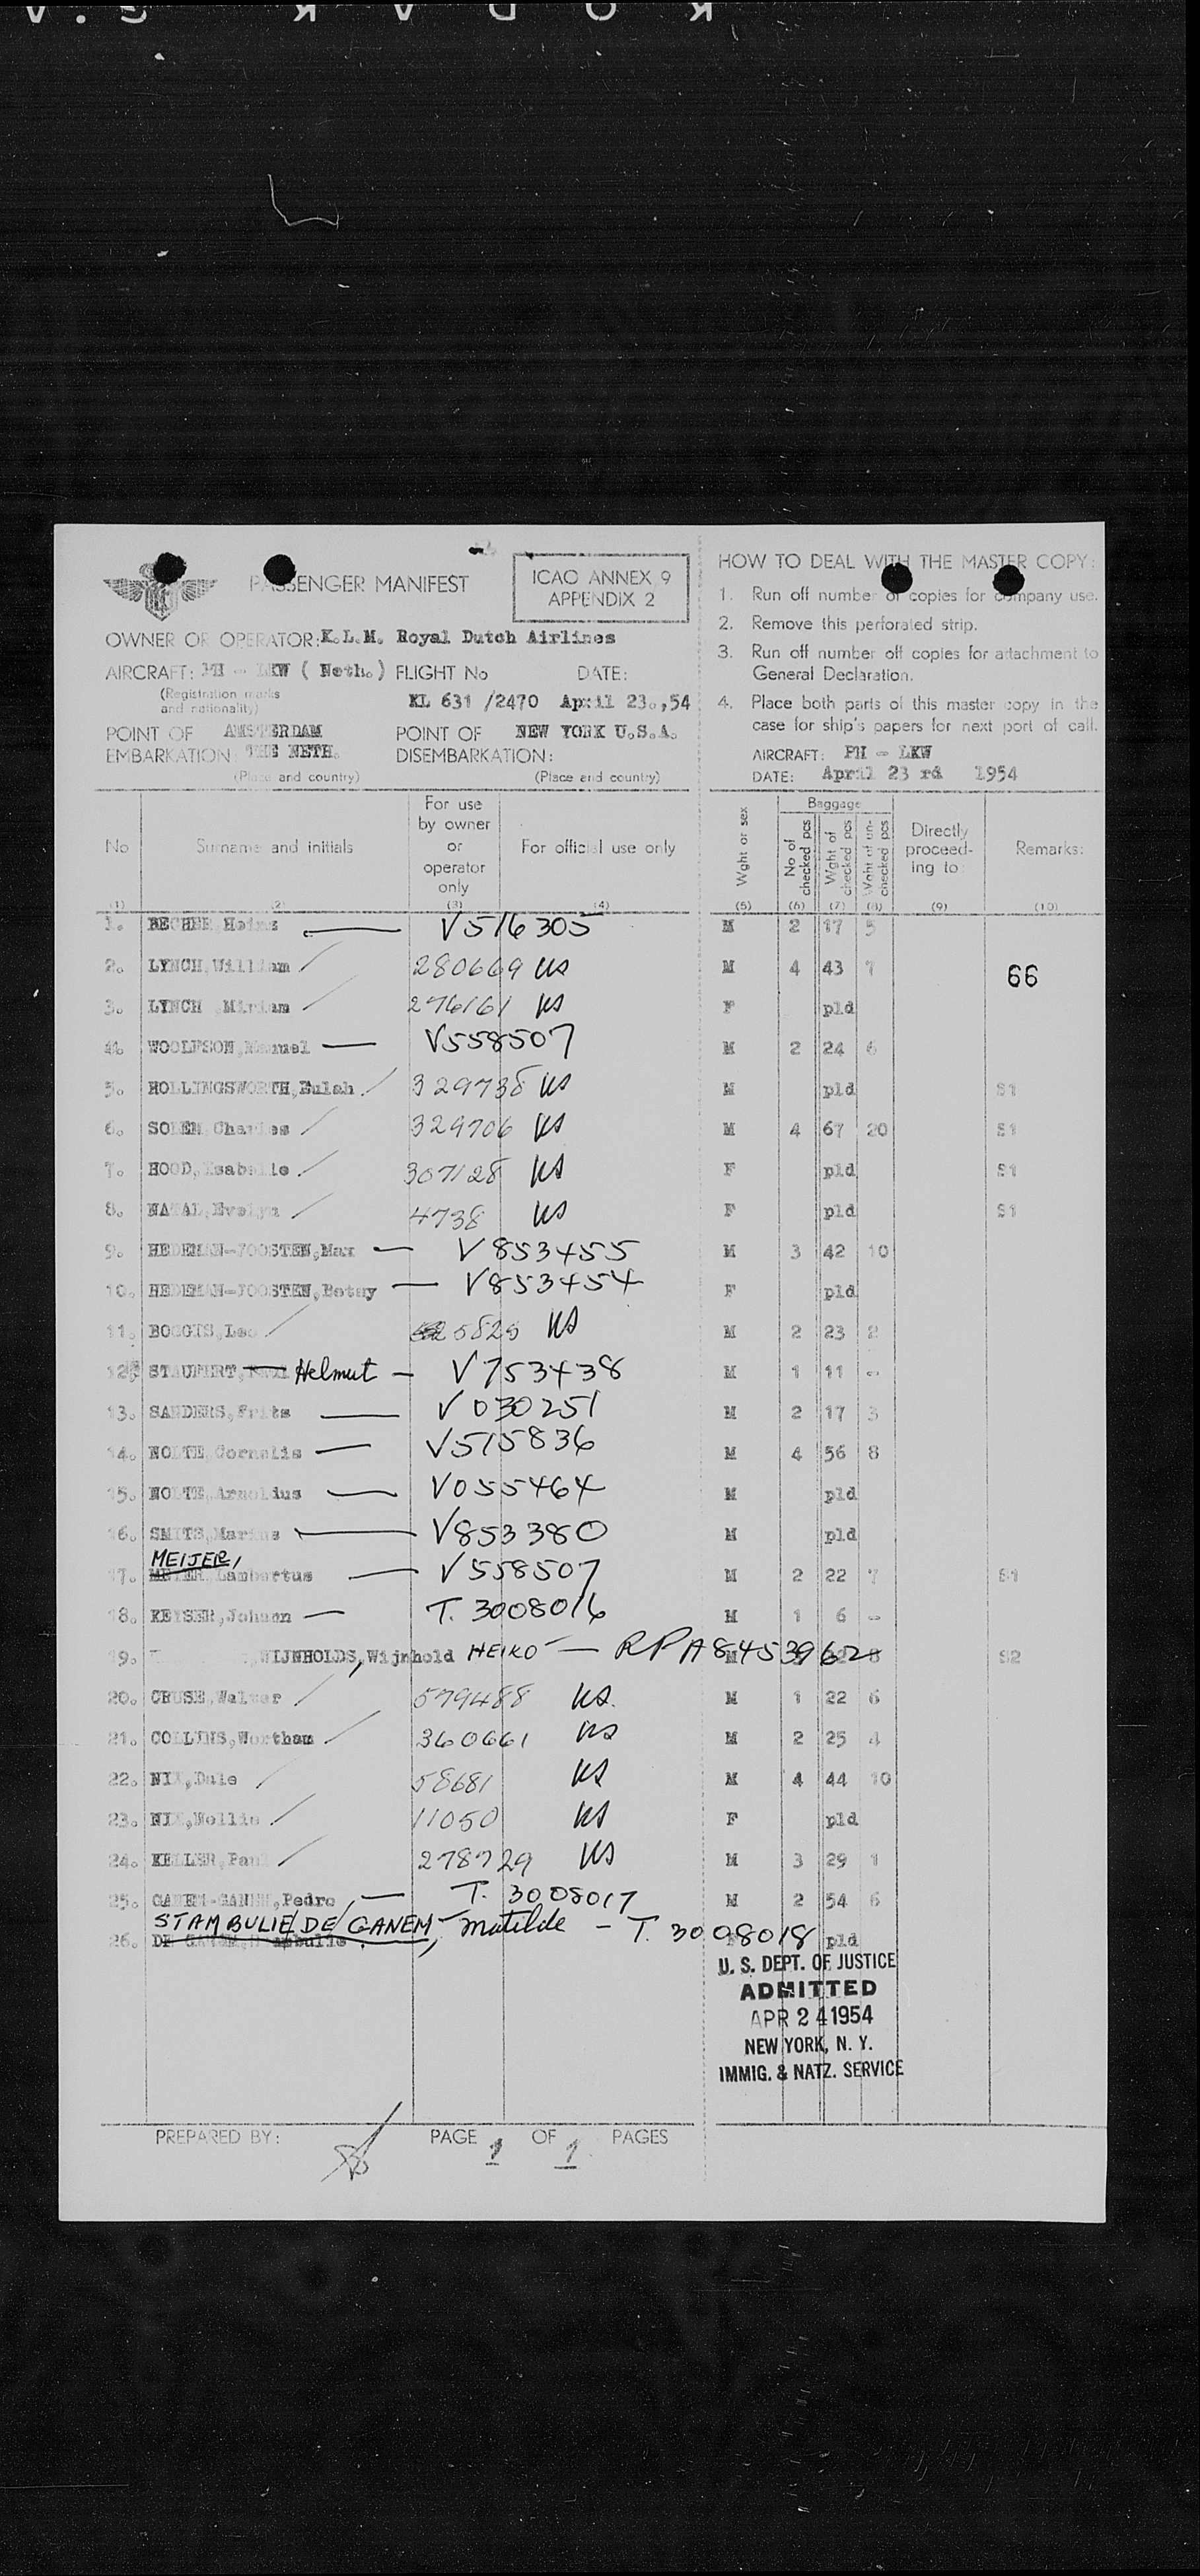 PASSENGER MANIFEST
ICAO ANNEX 9
APPENDIX 2
OWNER OR OPERATOR: K.L.M. Royal Dutch Airlines
AIRCRAFT: PH - LKW ( Neth. ) FLIGHT No DATE:
(Registration marks and nationality)
KL 631 /2470 April 23.,54
POINT OF AMSTERDAM POINT OF NEW YORK U.S.A.
EMBARKATION: THE NETH. DISEMBARKATION:
(Place and country) (Place and country)
HOW TO DEAL WITH THE MASTER COPY:
1. Run off number of copies for company use.
2. Remove this perforated strip.
3. Run off number off copies for attachment to
General Declaration.
4. Place both parts of this master copy in the
case for ship's papers for next port of call.
AIRCRAFT: PH - LKW
DATE: April 23 rd 1954
No Surname and initials For use by owner or operator only For official use only Wght or sex Baggage No of checked pcs Wght of checked pcs Wght of un-checked pcs Directly proceed-ing to: Remarks:
(1) (2) (3) (4) (5) (6) (7) (8) (9) (10)
1. V516305 M 2 17 5
2. LYNCH,William 280669 US M 4 43 7
66
3. LYNCH ,Miriam 276161 US F pld
4. WOOLFSON,Manuel V558507 M 2 24 6
5. HOLLINGSWORTH,Eulah 329738 US M pld S1
6. Charles 329706 US M 4 67 20 S1
7. HOOD,Isabelle 307128 US F pld S1
8. NATAL,Evelyn 4738 US F pld S1
9. HEDEMAN-JOOSTEN,Max V853455 M 3 42 10
10. HEDEMAN-JOOSTEN,Betsy V853454 F pld
11. BOGGIS,Leo 5825 US M 2 23 2
12. Helmut V753438 M 1 11 -
13. SANDERS,Frits V030251 M 2 17 3
14. NOLTE,Cornelis V515836 M 4 56 8
15. NOLTE,Arnoldus V055464 M pld
16. SMITS,Marius V853380 M pld
MEIJER,
17. Lambertus V558507 M 2 22 7 S1
18. KEYSER,Johnen T. 3008016 M 1 6 -
19. WIJNHOLDS,Wijnhold HEIKO RPA8453962 S2
20. CRUSE,Walter 579488 US. M 1 22 6
21. COLLINS,Wortham 360661 US M 2 25 4
22. NIX,Dale 58681 US M 4 44 10
23. NIX,Nollie 11050 US F pld
24. KELLER,Paul 278729 US M 3 29 1
25. GANEM-GANEM,Pedro T. 3008017 M 2 54 6
STAMBULIE DE GANEM, Matilde - T. 3008018 pld
26.
U. S. DEPT. OF JUSTICE
ADMITTED
APR 24 1954
NEW YORK, N. Y.
IMMIG. & NATZ. SERVICE
PREPARED BY: PAGE 1 OF 1 PAGES